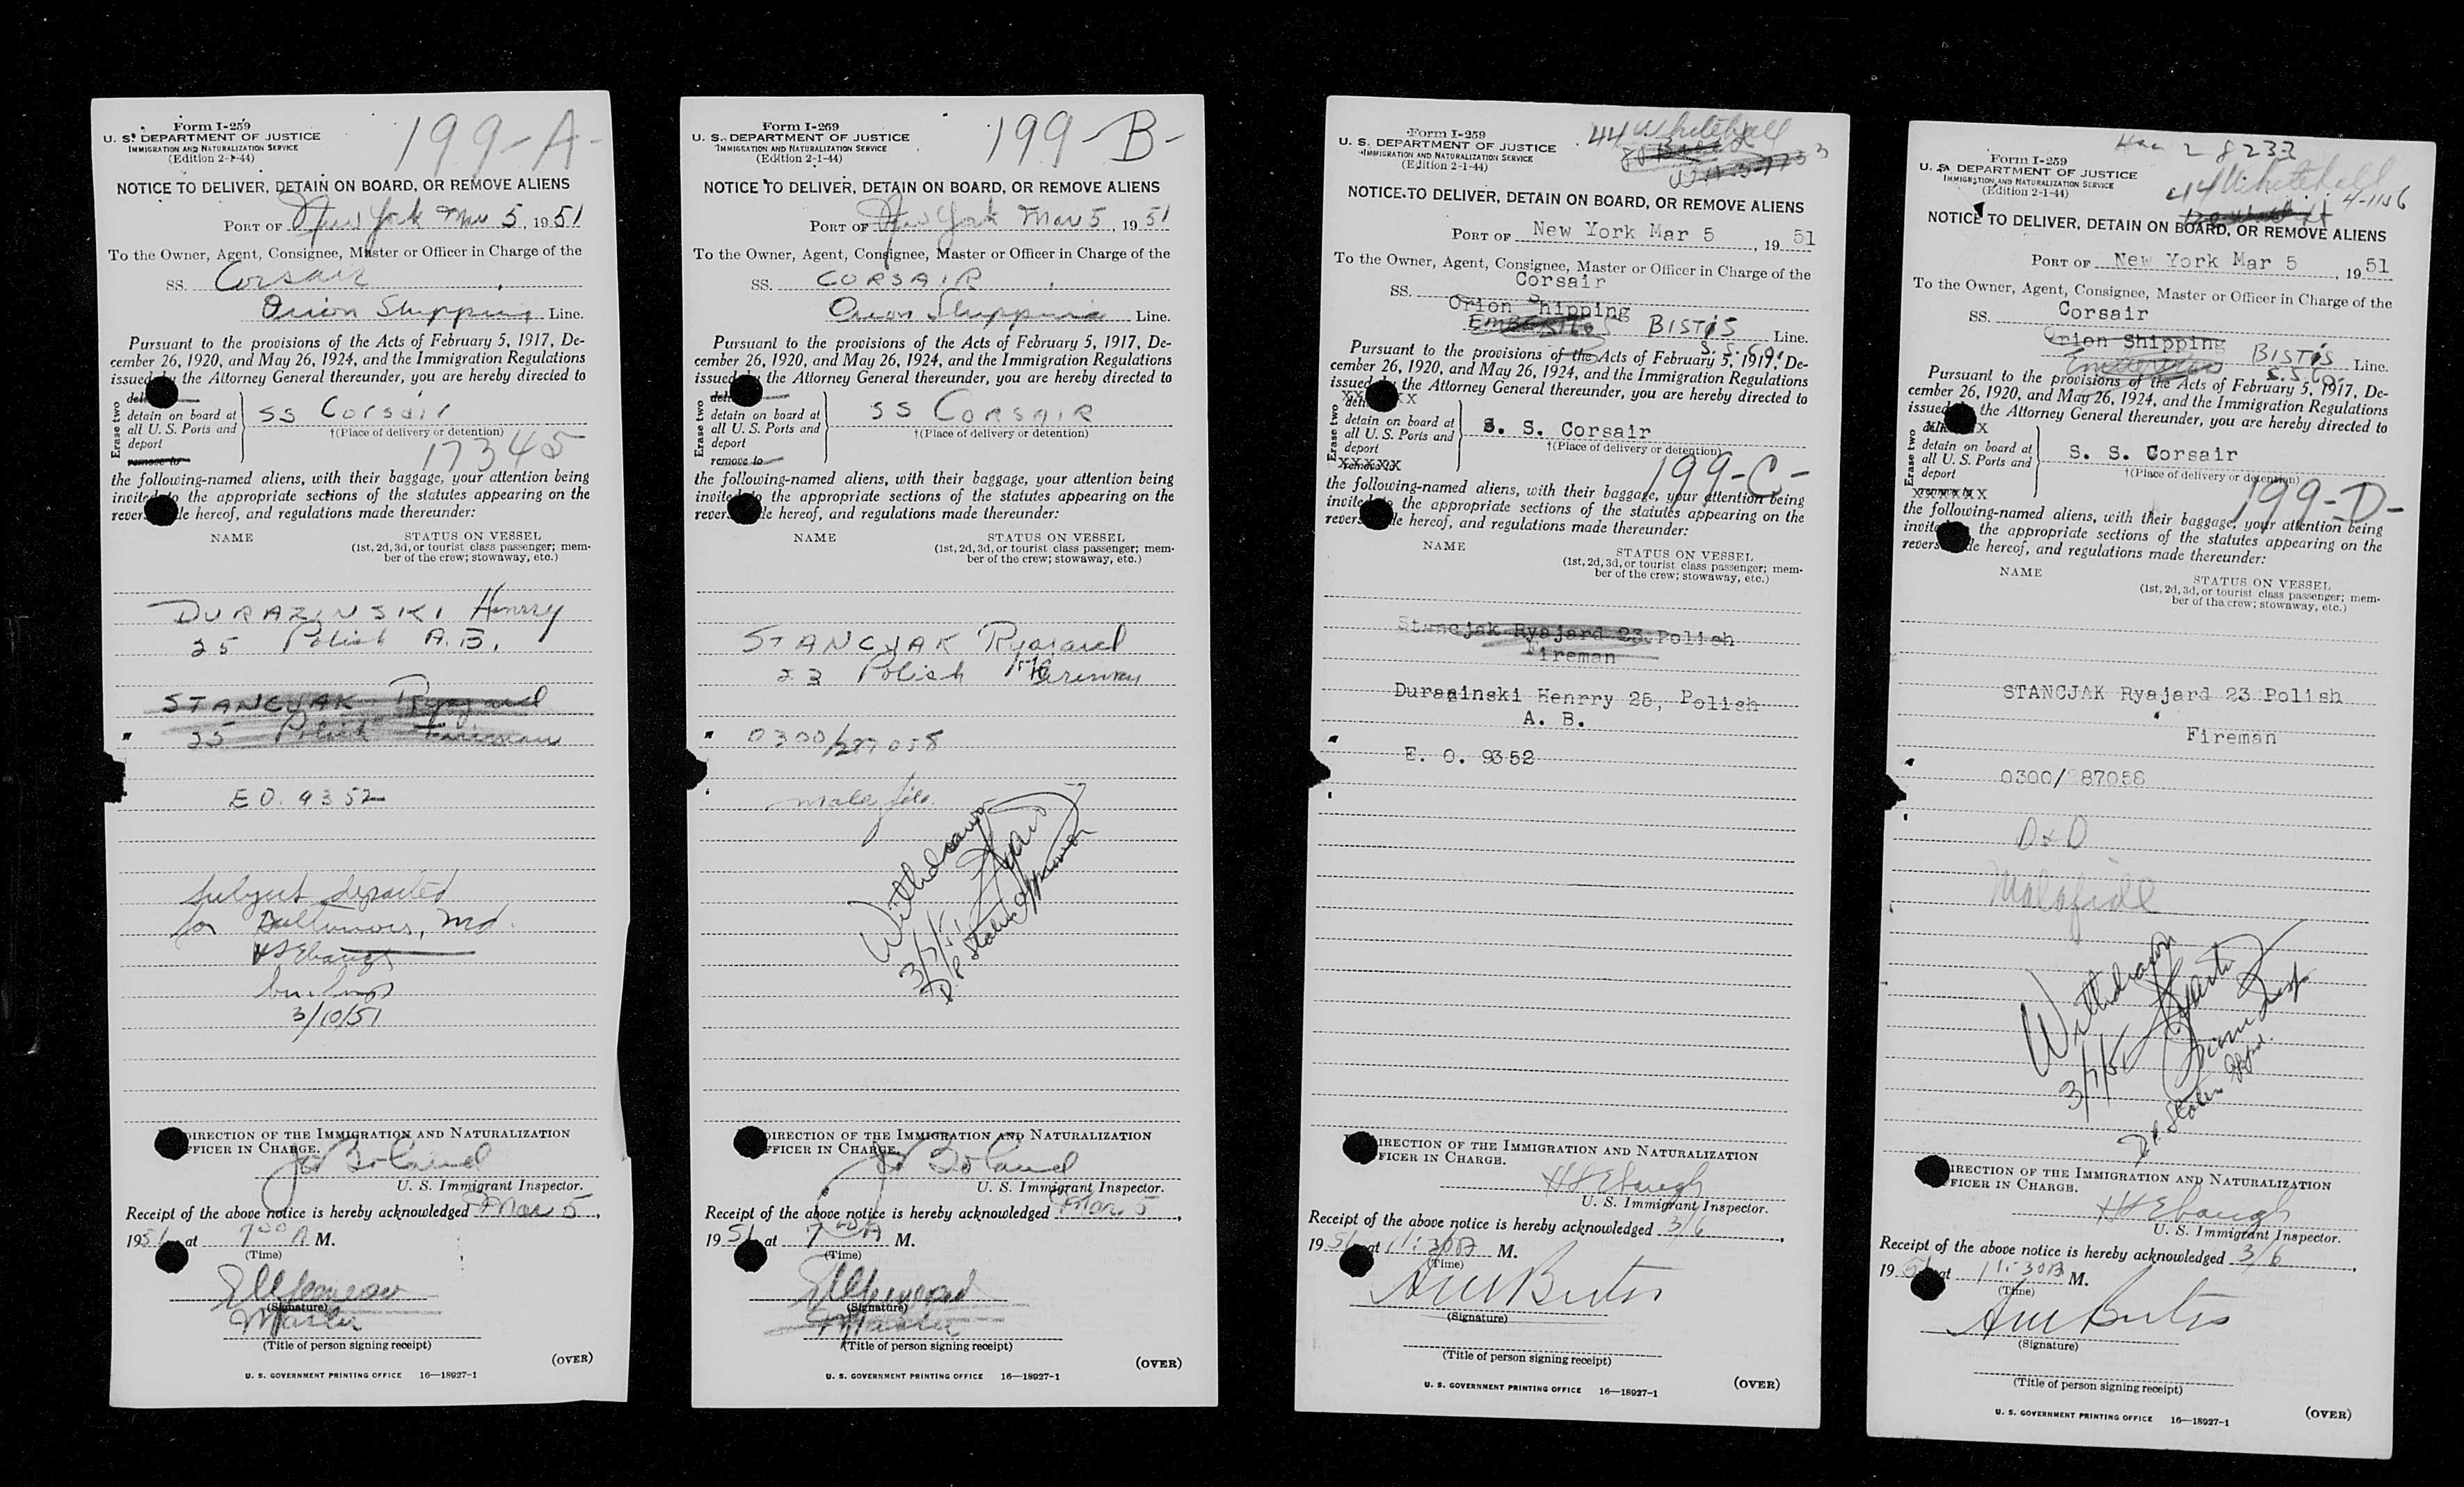 Form I-259
U. S. DEPARTMENT OF JUSTICE
IMMIGRATION AND NATURALIZATION SERVICE
(Edition 2-1-44)
199-A-
NOTICE TO DELIVER, DETAIN ON BOARD, OR REMOVE ALIENS
PORT OF New York Mar 5, 1951
To the Owner, Agent, Consignee, Master or Officer in Charge of the
SS. Corsair
Orion Shipping Line.
Pursuant to the provisions of the Acts of February 5, 1917, De-
cember 26, 1920, and May 26, 1924, and the Immigration Regulations
issued the Attorney General thereunder, you are hereby directed to
Erase two
detain on board at
all U. S. Ports and
deport
remove to
SS Corsair
†(Place of delivery or detention)
17345
the following-named aliens, with their baggage, your attention being
invited to the appropriate sections of the statutes appearing on the
hereof, and regulations made thereunder:
NAME
STATUS ON VESSEL
(1st, 2d, 3d, or tourist class passenger; mem-
ber of the crew; stowaway, etc.)
DURAZINSKI Henrry
25 Polish A.B.
STANCJAK Ryajard
Polish Fireman
E O. 9352
Subject departed
for Baltimore, Md.
HSEbaugh
3/10/51
DIRECTION OF THE IMMIGRATION AND NATURALIZATION
OFFICER IN CHARGE.
Boland
U. S. Immigrant Inspector.
Receipt of the above notice is hereby acknowledged Mar 5,
1951 at 7 00 A M.
(Time)
(Signature)
Master
(Title of person signing receipt)
(OVER)
U. S. GOVERNMENT PRINTING OFFICE 16—18927-1
Form I-259
U. S. DEPARTMENT OF JUSTICE
IMMIGRATION AND NATURALIZATION SERVICE
(Edition 2-1-44)
199-B-
NOTICE TO DELIVER, DETAIN ON BOARD, OR REMOVE ALIENS
PORT OF New York Mar 5, 1951
To the Owner, Agent, Consignee, Master or Officer in Charge of the
SS. CORSAIR
Orion Shipping Line.
Pursuant to the provisions of the Acts of February 5, 1917, De-
cember 26, 1920, and May 26, 1924, and the Immigration Regulations
issued the Attorney General thereunder, you are hereby directed to
Erase two
detain on board at
all U. S. Ports and
deport
remove to
SS CORSAIR
†(Place of delivery or detention)
the following-named aliens, with their baggage, your attention being
invited to the appropriate sections of the statutes appearing on the
hereof, and regulations made thereunder:
NAME
STATUS ON VESSEL
(1st, 2d, 3d, or tourist class passenger; mem-
ber of the crew; stowaway, etc.)
STANCJAK Ryajard
23 Polish Fireman
0300/287058
mala fide
Withdrawn
3/7/51
DIRECTION OF THE IMMIGRATION AND NATURALIZATION
OFFICER IN CHARGE.
Boland
U. S. Immigrant Inspector.
Receipt of the above notice is hereby acknowledged Mar. 5,
1951 at 7 00 A M.
(Time)
(Signature)
Master
(Title of person signing receipt)
(OVER)
U. S. GOVERNMENT PRINTING OFFICE 16—18927-1
Form I-259
U. S. DEPARTMENT OF JUSTICE
IMMIGRATION AND NATURALIZATION SERVICE
(Edition 2-1-44)
44 Whitehall
NOTICE TO DELIVER, DETAIN ON BOARD, OR REMOVE ALIENS
PORT OF New York Mar 5, 1951
To the Owner, Agent, Consignee, Master or Officer in Charge of the
Corsair
SS.
Orion Shipping
BISTIS Line.
S.S. Co.
Pursuant to the provisions of the Acts of February 5, 1917, De-
cember 26, 1920, and May 26, 1924, and the Immigration Regulations
issued the Attorney General thereunder, you are hereby directed to
Erase two
detain on board at
all U. S. Ports and
deport
S. S. Corsair
†(Place of delivery or detention)
199-C-
the following-named aliens, with their baggage, your attention being
invited to the appropriate sections of the statutes appearing on the
hereof, and regulations made thereunder:
NAME
STATUS ON VESSEL
(1st, 2d, 3d, or tourist class passenger; mem-
ber of the crew; stowaway, etc.)
Stancjak Ryajard 23 Polish
Fireman
Durazinski Henrry 25, Polish
A. B.
E. O. 9352
DIRECTION OF THE IMMIGRATION AND NATURALIZATION
OFFICER IN CHARGE.
HSEbaugh
U. S. Immigrant Inspector.
Receipt of the above notice is hereby acknowledged 3/6,
1951 at 11:30A M.
(Time)
(Signature)
(Title of person signing receipt)
(OVER)
U. S. GOVERNMENT PRINTING OFFICE 16—18927-1
28233
Form I-259
U. S. DEPARTMENT OF JUSTICE
IMMIGRATION AND NATURALIZATION SERVICE
(Edition 2-1-44)
44 Whitehall
4-1156
NOTICE TO DELIVER, DETAIN ON BOARD, OR REMOVE ALIENS
PORT OF New York Mar 5, 1951
To the Owner, Agent, Consignee, Master or Officer in Charge of the
SS. Corsair
Orion Shipping
BISTIS Line.
S.S. Co.
Pursuant to the provisions of the Acts of February 5, 1917, De-
cember 26, 1920, and May 26, 1924, and the Immigration Regulations
issued the Attorney General thereunder, you are hereby directed to
Erase two
detain on board at
all U. S. Ports and
deport
S. S. Corsair
†(Place of delivery or detention)
199-D-
the following-named aliens, with their baggage, your attention being
invited the appropriate sections of the statutes appearing on the
hereof, and regulations made thereunder:
NAME
STATUS ON VESSEL
(1st, 2d, 3d, or tourist class passenger; mem-
ber of the crew; stowaway, etc.)
STANCJAK Ryajard 23 Polish
Fireman
0300/287058
D+D
Malafide
Withdrawn
3/7/51
DIRECTION OF THE IMMIGRATION AND NATURALIZATION
OFFICER IN CHARGE.
HSEbaugh
U. S. Immigrant Inspector.
Receipt of the above notice is hereby acknowledged 3/6,
1951 at 11:30A M.
(Time)
(Signature)
(Title of person signing receipt)
(OVER)
U. S. GOVERNMENT PRINTING OFFICE 16—18927-1